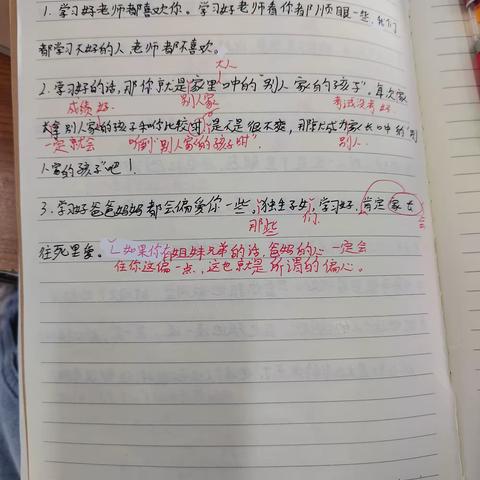 1. 学习好老师都喜欢你。学习好老师看你都顺眼一些,我们
都学习不好的人,老师都不喜欢。
大人
2. 学习好的话,那你就是家里口中的“别人家的孩子”。每次家
成绩好 别人家 考试没考好
别人家的孩子和你比较时是不是很不爽,那就成为家长口中的“别
一定就会 听到“别人家的孩子时”. 别人
人家的孩子”吧!
3. 学习好爸爸妈妈都会偏爱你一些,独生子女,学习好,肯定
那些 们. 会
往死里爱。如果你有姐妹兄弟的话,爸妈的心一定会
在你这偏一点,这也就是所谓的偏心。